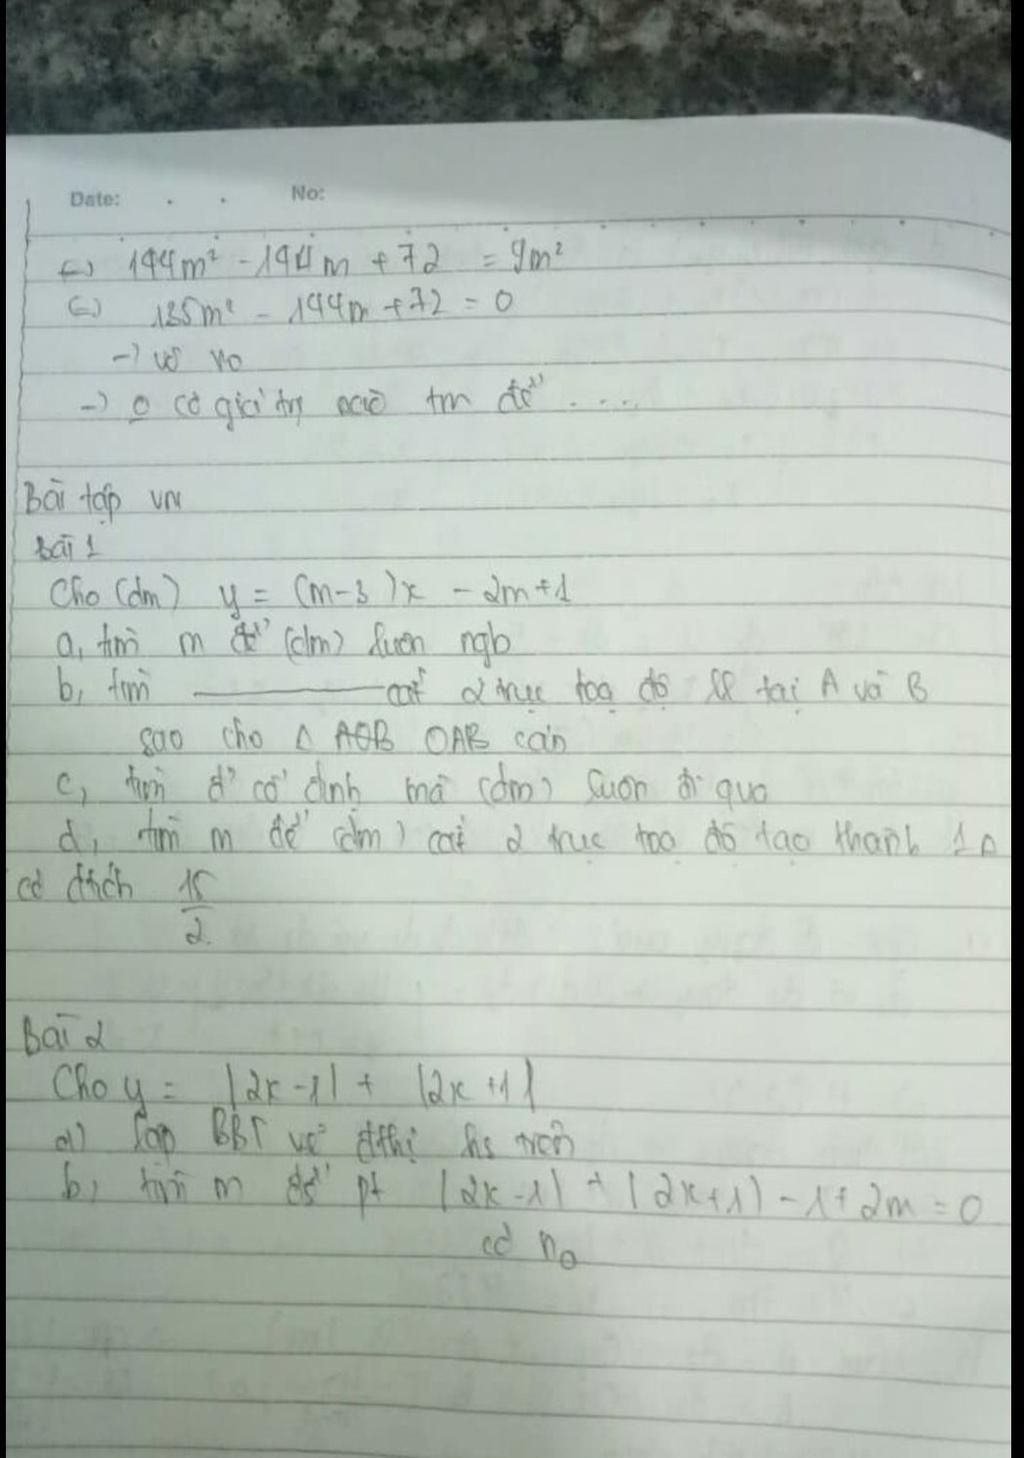 Date: . . No:
<=> 144m² - 144m + 72 = 9m²
<=> 135m² - 144m + 72 = 0
-> vô no
-> 0 có giá trị nào tm để ....
Bài tập VN
Bài 1
Cho (dm) y = (m-3)x - 2m+1
a, tìm m để (dm) luôn ngb
b, tìm ——— cắt 2 trục toạ độ lll tại A và B
sao cho Δ AOB OAB cân
c, tìm đ' cố định mà (dm) luôn đi qua
d, tìm m để (dm) cắt 2 trục toạ độ tạo thành 1 Δ
có đtích 15/2
Bài 2
Cho y = |2x-1| + |2x+1|
a) Lập BBT vẽ đthị hs trên
b, tìm m để pt |2x-1| + |2x+1| - 1+2m = 0
có no